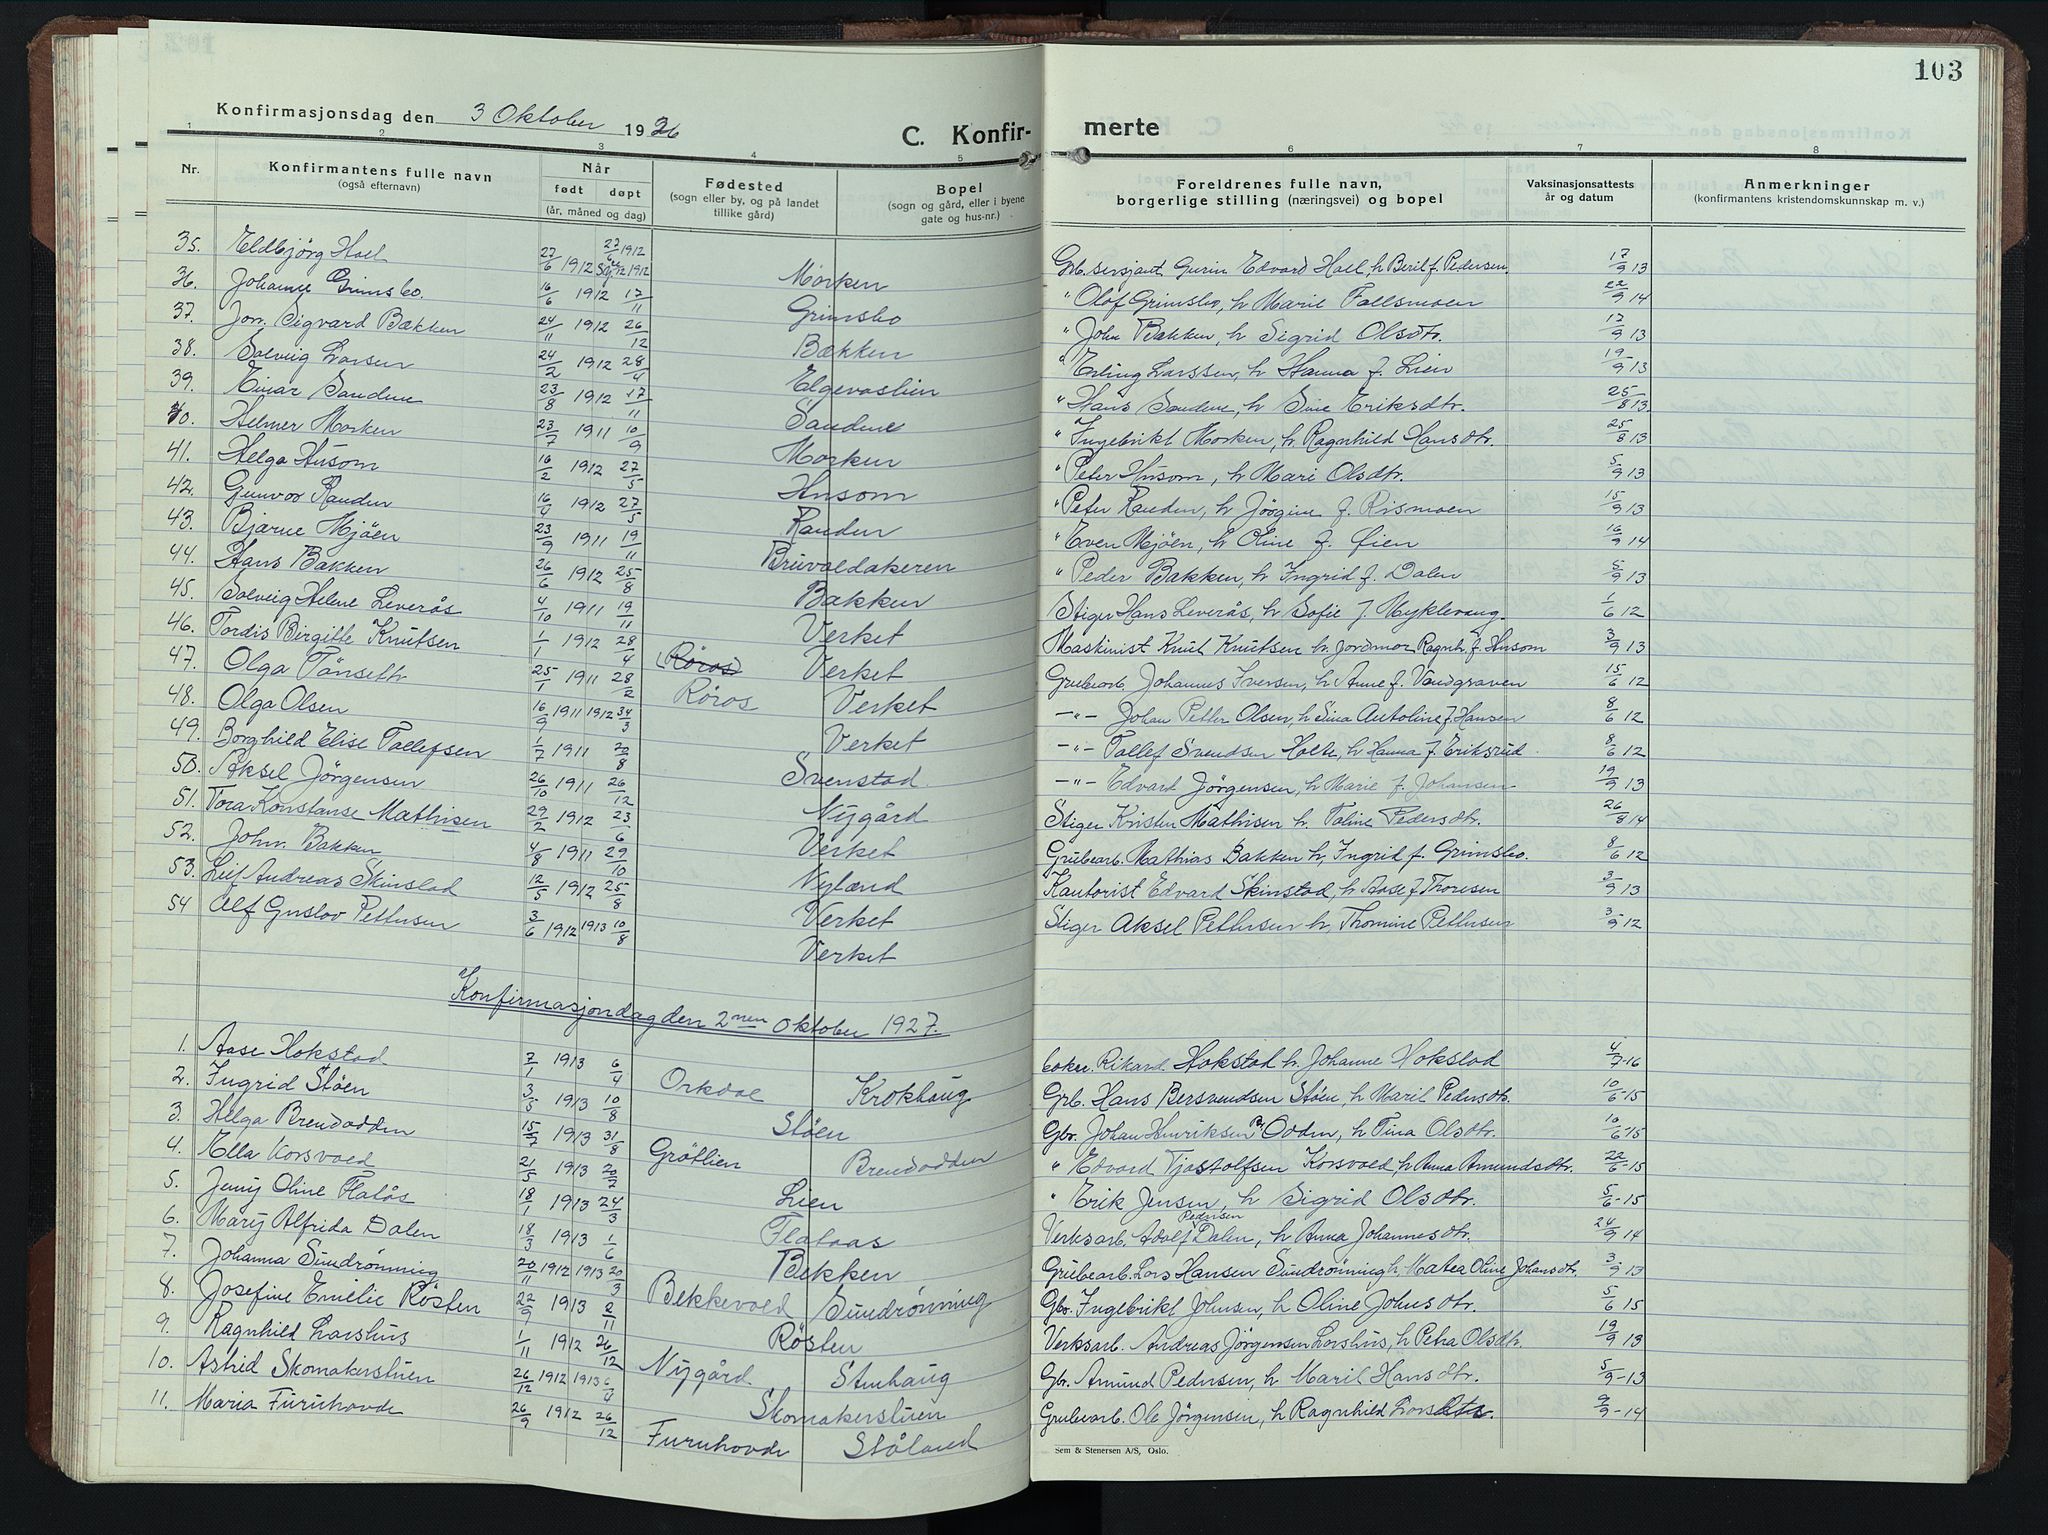 103
Konfirmasjonsdag den 3 Oktober 1926
C. Konfir-
merte
1 2 3 4 5 6 7 8
Nr. Konfirmantens fulle navn (også efternavn) Når født døpt (år, måned og dag) Fødested (sogn eller by, og på landet tillike gård) Bopel (sogn og gård, eller i byene gate og hus-nr.) Foreldrenes fulle navn, borgerlige stilling (næringsvei) og bopel Vaksinasjonsattests år og datum Anmerkninger (konfirmantens kristendomskunnskap m. v.)
35. Eldbjørg Hoel 27/6 1912 27/6 1912 Morken Grb. sersjant Gurin Edvard Hoel, h Beril f. Pedersen 17/9 13
36. Johanne Grimsbo. 16/6 1912 17/11 Grimsbo " Olof Grimsbo, h Marie Follsmoen 22/9 14
37. Jon Sigvard Bækken 24/11 1912 26/12 Bækken " John Bækken, h Sigrid Olsdtr. 17/9 13
38. Solveig Larsen 24/2 1912 28/4 Elgevaslien " Erling Larssen, h Hanna f. Lien 19/9 13
39. Einar Sandene 23/8 1912 17/11 Sandene " Hans Sandene, h Sine Eriksdtr. 25/8 13
40. Helmer Morken 23/7 1911 10/9 Morken " Ingebrikt Morken, h. Ragnhild Hansdtr. 25/8 13
41. Helga Husom 16/2 1912 27/5 Husom " Peter Husom, h Mari Olsdtr. 5/9 13
42. Gunvor Randen 16/4 1912 27/5 Randen " Peter Randen, h Jørgine f. Rismoen 15/9 13
43. Bjarne Mjøen 23/9 1911 19/11 Bruvoldakeren " Even Mjøen, h Oline f. Øien 16/9 14
44. Hans Bakken 26/6 1912 25/8 Bakken " Peder Bakken, h Ingrid f. Dalen 5/9 13
45. Solveig Helene Leverås 4/10 1911 19/11 Verket Stiger Hans Leverås, h Sofie f. Myklevang. 1/6 12
46. Tordis Birgitte Knutsen 1/1 1912 28/4 (Røros) Verket Maskinist Knut Knutsen h. Jordmor Ragnh. f. Husom 3/9 13
47. Olga Tønseth 25/1 1911 28/2 Røros Verket Grubearb. Johannes Iversen, h Anne f. Vandgraven 15/6 12
48. Olga Olsen 16/9 1911 1912 24/3 Verket -"- Johan Petter Olsen, h Sina Antoline f. Hansen 8/6 12
49. Borghild Elise Tollefsen 1/7 1911 20/8 Svenstad -"- Tollef Svendsen Holte, h Hanna f. Eriksrud. 8/6 12
50. Aksel Jørgensen 26/10 1911 26/12 Nygård -"- Edvard Jørgensen, h Marie f. Johansen 19/9 13
51. Tora Konstanse Mathisen 29/2 1912 23/6 Verket Stiger Kristen Mathisen h. Taline Pedersdtr. 26/8 14
52. John Bakken 4/8 1911 29/10 Nyland Grubearb. Mathias Bakken h, Ingrid f. Grimsbo. 8/6 12
53. Leif Andreas Skinstad 12/5 1912 25/8 Verket Kantorist Edvard Skinstad, h Aase f Thoresen 3/9 13
54 Alf Gustav Pettersen 3/6 1912 1913 10/8 Verket Stiger Aksel Pettersen h, Thomine Pettersen 3/9 -12
Konfirmasjondag den 2nen Oktober 1927.
1. Aase Hokstad 7/1 1913 6/4 Orkdal Krokhaug Rikard Hokstad h. Johanne Hokstad 4/7-16
2. Ingrid Støen 3/5 1913 10/8 Støen Grb. Hans Bersvendsen Støen, h Maril Pedersdtr. 10/6-15
3. Helga Brendodden 15/7 1913 31/8 Grøtlien Brendodden Gbr. Johan Henriksen Odden, h Tina Olsdtr. 10/6-15
4. Ella Korsvold 21/5 1913 20/7 Lien " Edvard Tjostolfsen Korsvold, h Anna Amundsdtr. 22/6-15
5. Jenny Oline Flatås 18/1 1913 24/3 Flataas " Erik Jensen, h Sigrid Olsdtr. 5/6-15
6. Mary Alfrida Dalen 18/3 1913 1/6 Bekken Verksarb. Adolf Pedersen Dalen, h Anna Johannesdtr. 24/9 14
7. Johanna Sundrønning 20/11 1912 1913 20/3 Bekkevold Sundrønning Grubearb. Lars Hansen Sundrønning h Matea Oline Johansdtr. 3/9 13
8. Josefine Emelie Røsten 22/9 1913 2/11 Røsten Gbr. Ingebrikt Johnsen, h Oline Johnsdtr. 5/6 15
9. Ragnhild Larshus 1/11 1912 26/12 Nygård. Stenhaug Verksarb. Andreas Jørgensen Larshus, h Petra Olsdtr. 19/9 13
10. Astrid Skomakerstuen 26/12 1912 1913 6/4 Skomakerstuen Gbr. Amund Pedersen, h Maril Hansdtr. 5/9-13
11. Maria Furuhovde 26/9 1912 26/12 Furuhovde Ståland Grubearb. Ole Jørgensen, h Ragnhild Larsdtr. 9/9-14
Sem & Stenersen A/S, Oslo.